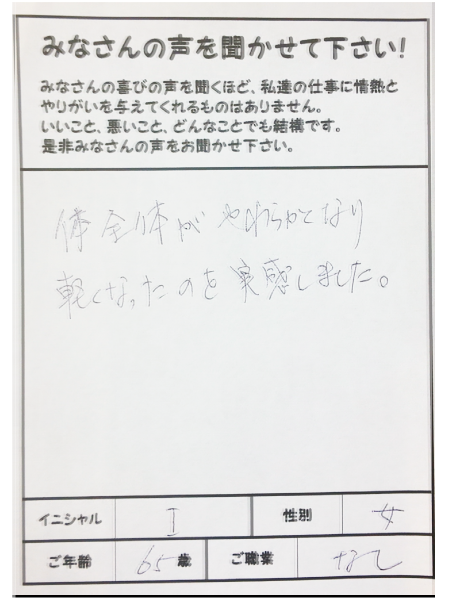 みなさんの声を聞かせて下さい!
みなさんの喜びの声を聞くほど、私達の仕事に情熱と
やりがいを与えてくれるものはありません。
いいこと、悪いこと、どんなことでも結構です。
是非みなさんの声をお聞かせ下さい。
体全体がやわらかくなり
軽くなったのを実感しました。
イニシャル I 性別 女
ご年齢 65歳 ご職業 なし